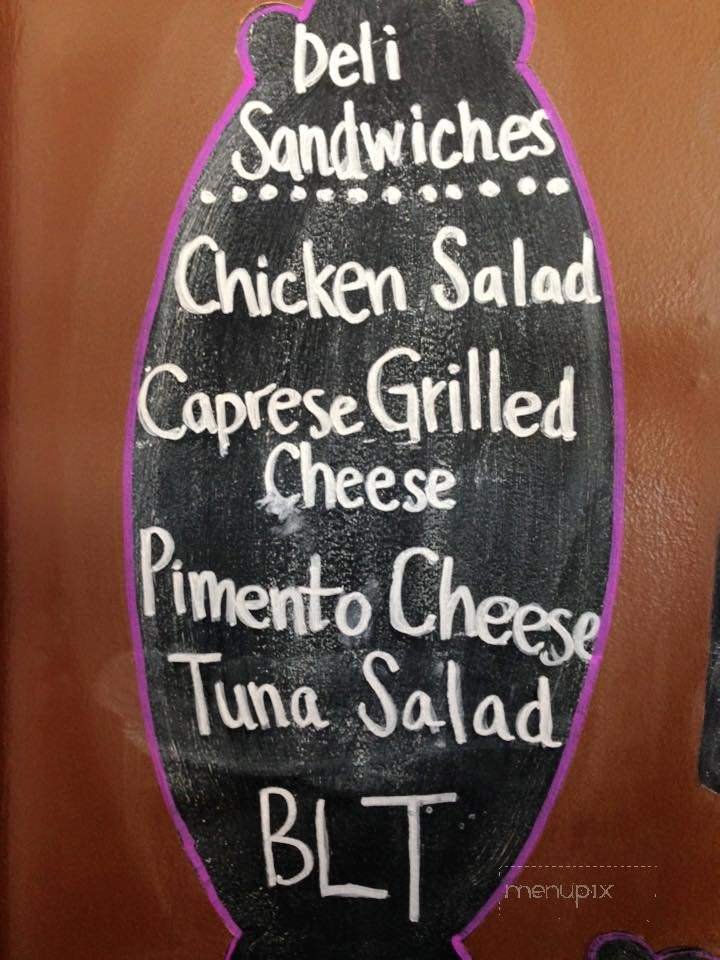 Deli
Sandwiches
Chicken Salad
Caprese Grilled
Cheese
Pimento Cheese
Tuna Salad
BLT
menupix